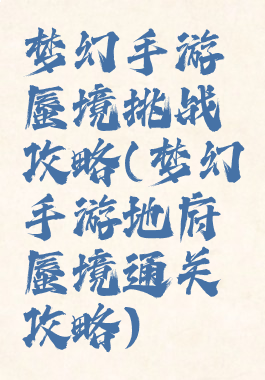 梦幻手游
蜃境挑战
攻略(梦幻
手游地府
蜃境通关
攻略)